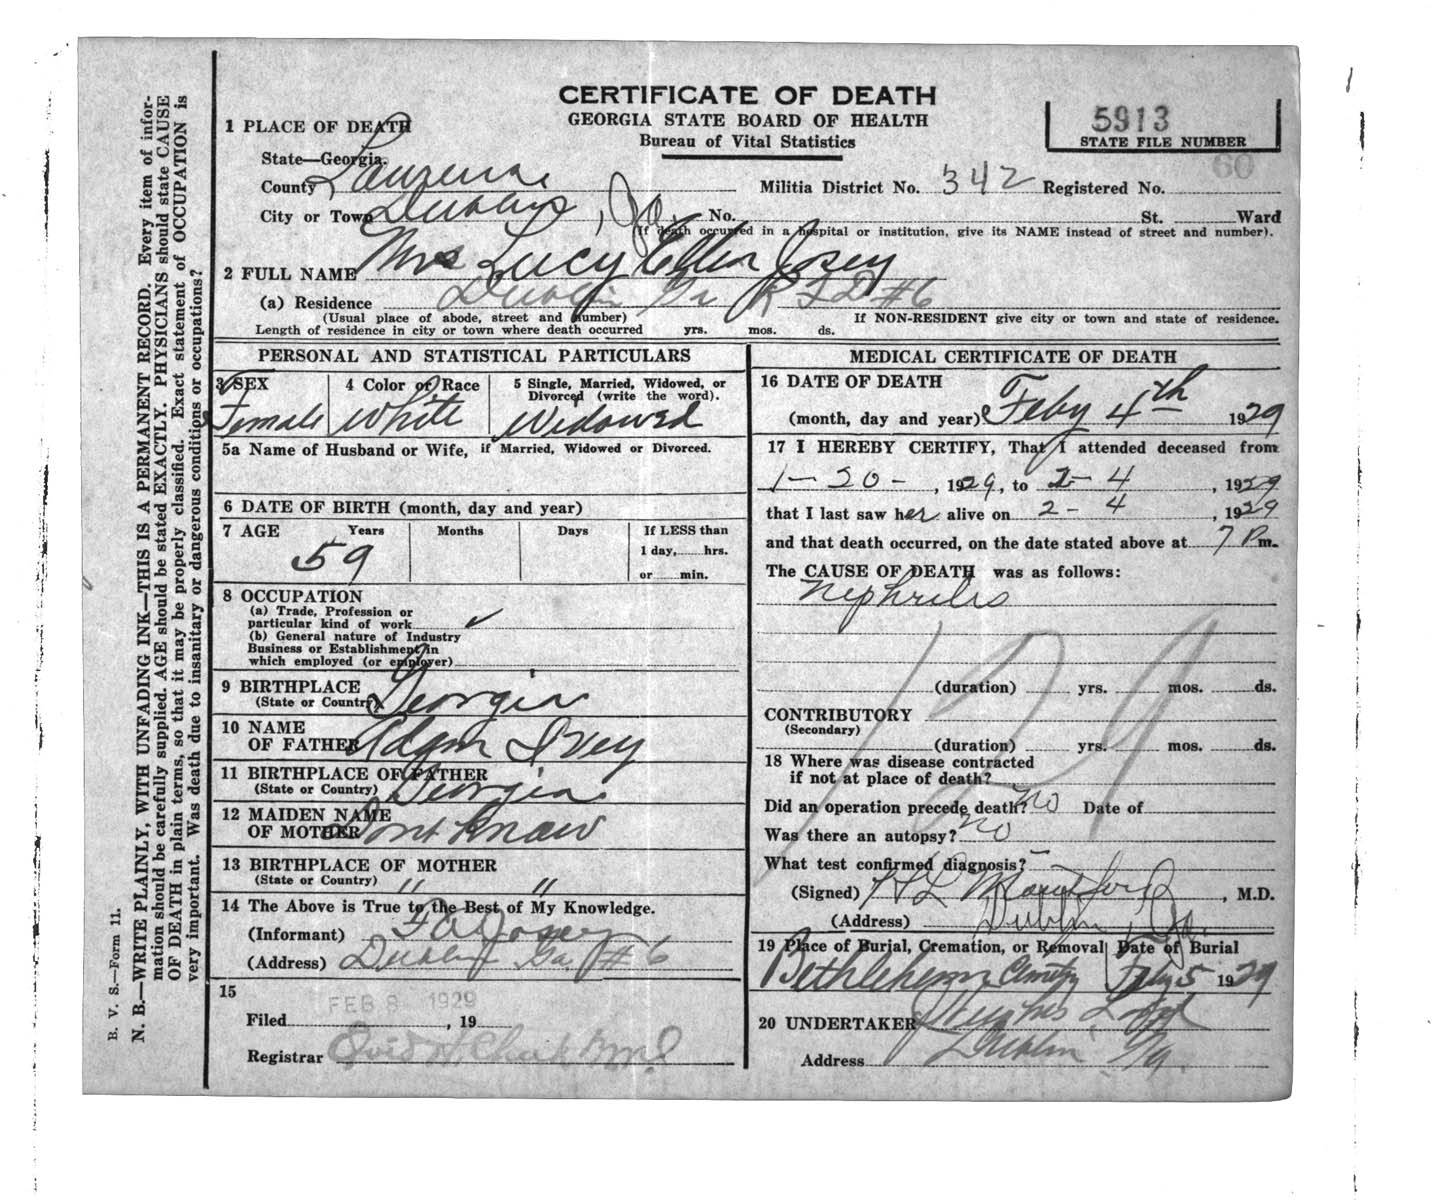 CERTIFICATE OF DEATH
GEORGIA STATE BOARD OF HEALTH
Bureau of Vital Statistics
5913
STATE FILE NUMBER
60
1 PLACE OF DEATH
State—Georgia.
County Laurens. Militia District No. 342 Registered No.
City or Town Dublin, Ga. No. St. Ward
(If death occurred in a hospital or institution, give its NAME instead of street and number).
2 FULL NAME Mrs Lucy Ellen Josey
(a) Residence Dublin Ga R F D #6
(Usual place of abode, street and number) If NON-RESIDENT give city or town and state of residence.
Length of residence in city or town where death occurred yrs. mos. ds.
PERSONAL AND STATISTICAL PARTICULARS
3 SEX 4 Color or Race 5 Single, Married, Widowed, or
Divorced (write the word).
Female White Widowed
5a Name of Husband or Wife, if Married, Widowed or Divorced.
6 DATE OF BIRTH (month, day and year)
7 AGE Years Months Days If LESS than
1 day, hrs.
59
or min.
8 OCCUPATION
(a) Trade, Profession or
particular kind of work ✓
(b) General nature of Industry
Business or Establishment in
which employed (or employer)
9 BIRTHPLACE
(State or Country) Georgia
10 NAME
OF FATHER Adam Ivey
11 BIRTHPLACE OF FATHER
(State or Country) Georgia
12 MAIDEN NAME
OF MOTHER Dont Know
13 BIRTHPLACE OF MOTHER
(State or Country) " "
14 The Above is True to the Best of My Knowledge.
(Informant) Josey
(Address) Dublin Ga. #6
15
FEB 8 1929
Filed , 19
Registrar
MEDICAL CERTIFICATE OF DEATH
16 DATE OF DEATH
(month, day and year) Feby 4th 1929
17 I HEREBY CERTIFY, That I attended deceased from
1 - 20 - , 1929, to 2 - 4 , 1929
that I last saw her alive on 2 - 4 , 1929
and that death occurred, on the date stated above at 7 Pm.
The CAUSE OF DEATH was as follows:
Nephritis
129
(duration) yrs. mos. ds.
CONTRIBUTORY
(Secondary)
(duration) yrs. mos. ds.
18 Where was disease contracted
if not at place of death?
Did an operation precede death? no Date of
Was there an autopsy? no
What test confirmed diagnosis? –
(Signed) , M.D.
(Address) Dublin Ga.
19 Place of Burial, Cremation, or Removal Date of Burial
Bethlehem Feby 5 1929
20 UNDERTAKER
Address Dublin Ga.
B. V. S.—Form 11.
N. B.—WRITE PLAINLY, WITH UNFADING INK—THIS IS A PERMANENT RECORD. Every item of infor-
mation should be carefully supplied. AGE should be stated EXACTLY. PHYSICIANS should state CAUSE
OF DEATH in plain terms, so that it may be properly classified. Exact statement of OCCUPATION is
very important. Was death due to insanitary or dangerous conditions or occupations?